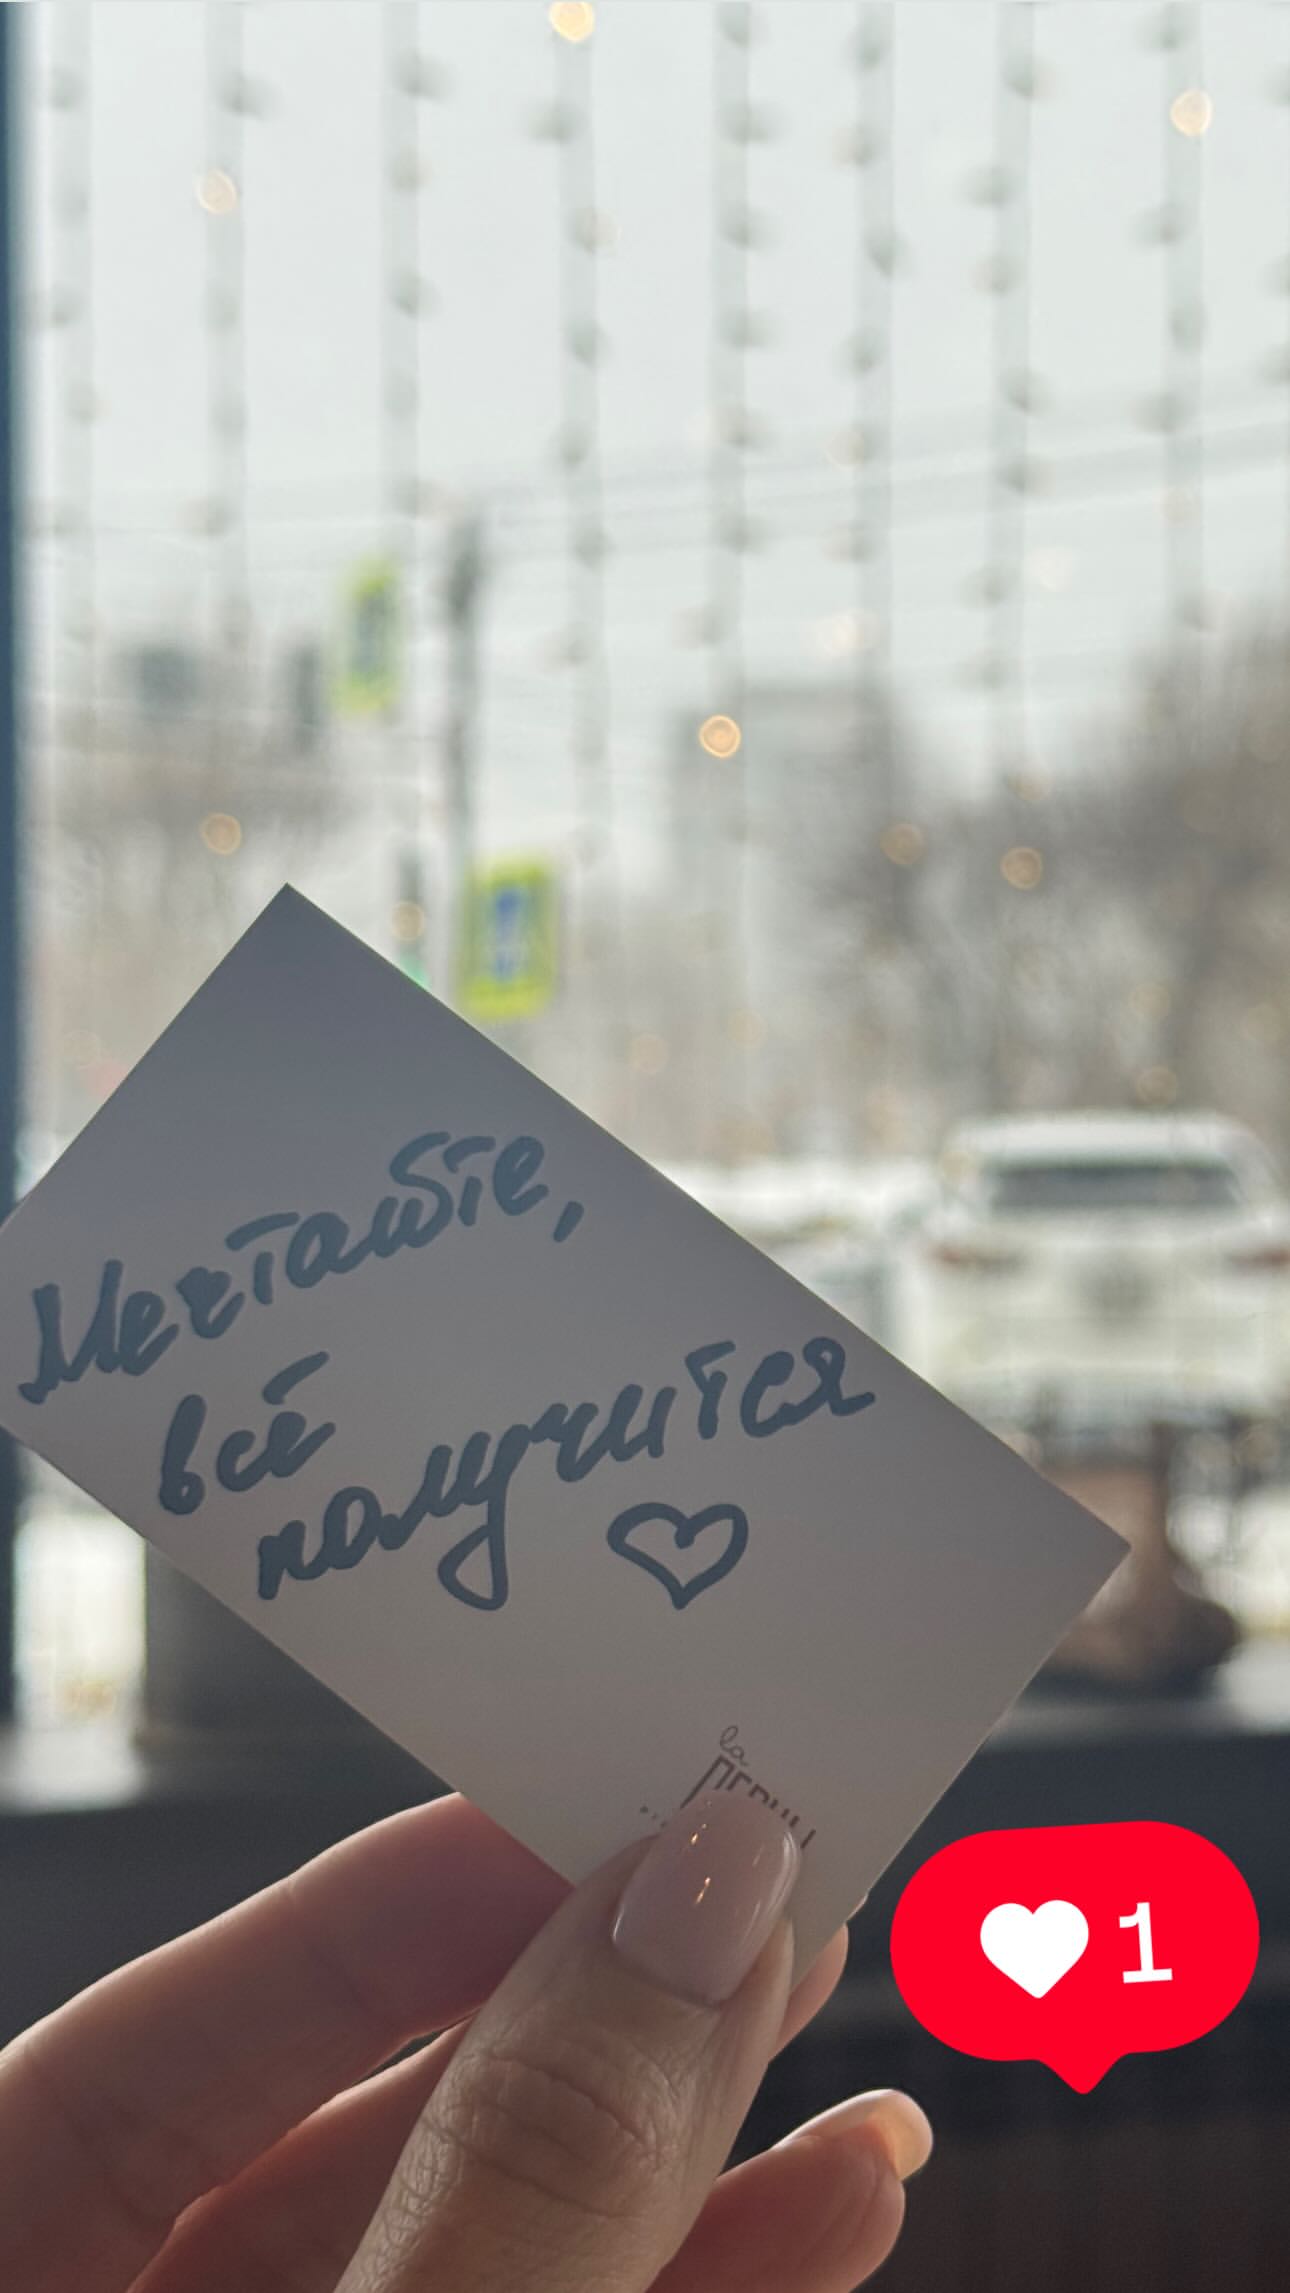 Мечтайте,
всё
получится
la
1